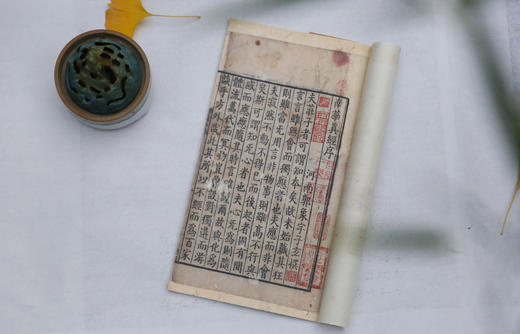 南華真經序
河南郭象子玄撰
夫莊子者可謂知本矣故未始藏其狂
言言雖無會而獨應者也夫應而非會
則雖當無用言非物事則雖高不行與
夫寂然不動不得已而後起者固有間
矣斯可謂知無心者也夫心無為則隨
感而應應隨其時言唯謹爾故與化為
體流萬代而冥物豈曾設對獨遘而游
談乎方外哉此其所以不經而為百家